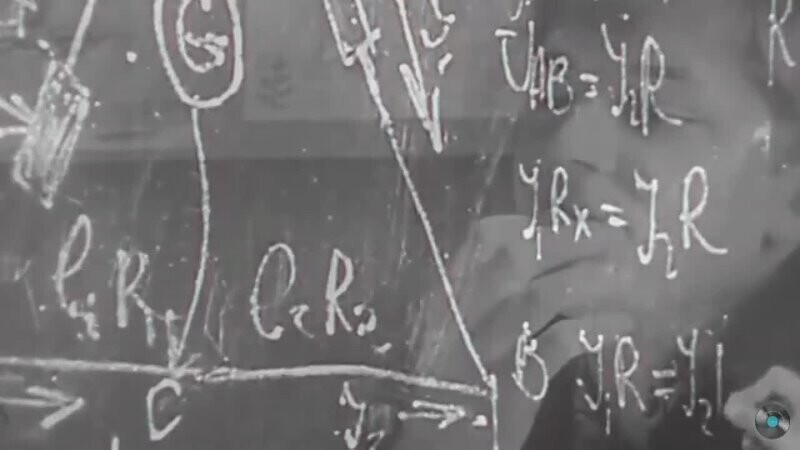 G
U_AB = J₂R
R
J₁Rx = J₂R
l₁ R₁
l₂ R₂
C
J₂
B
J₁R = J₂